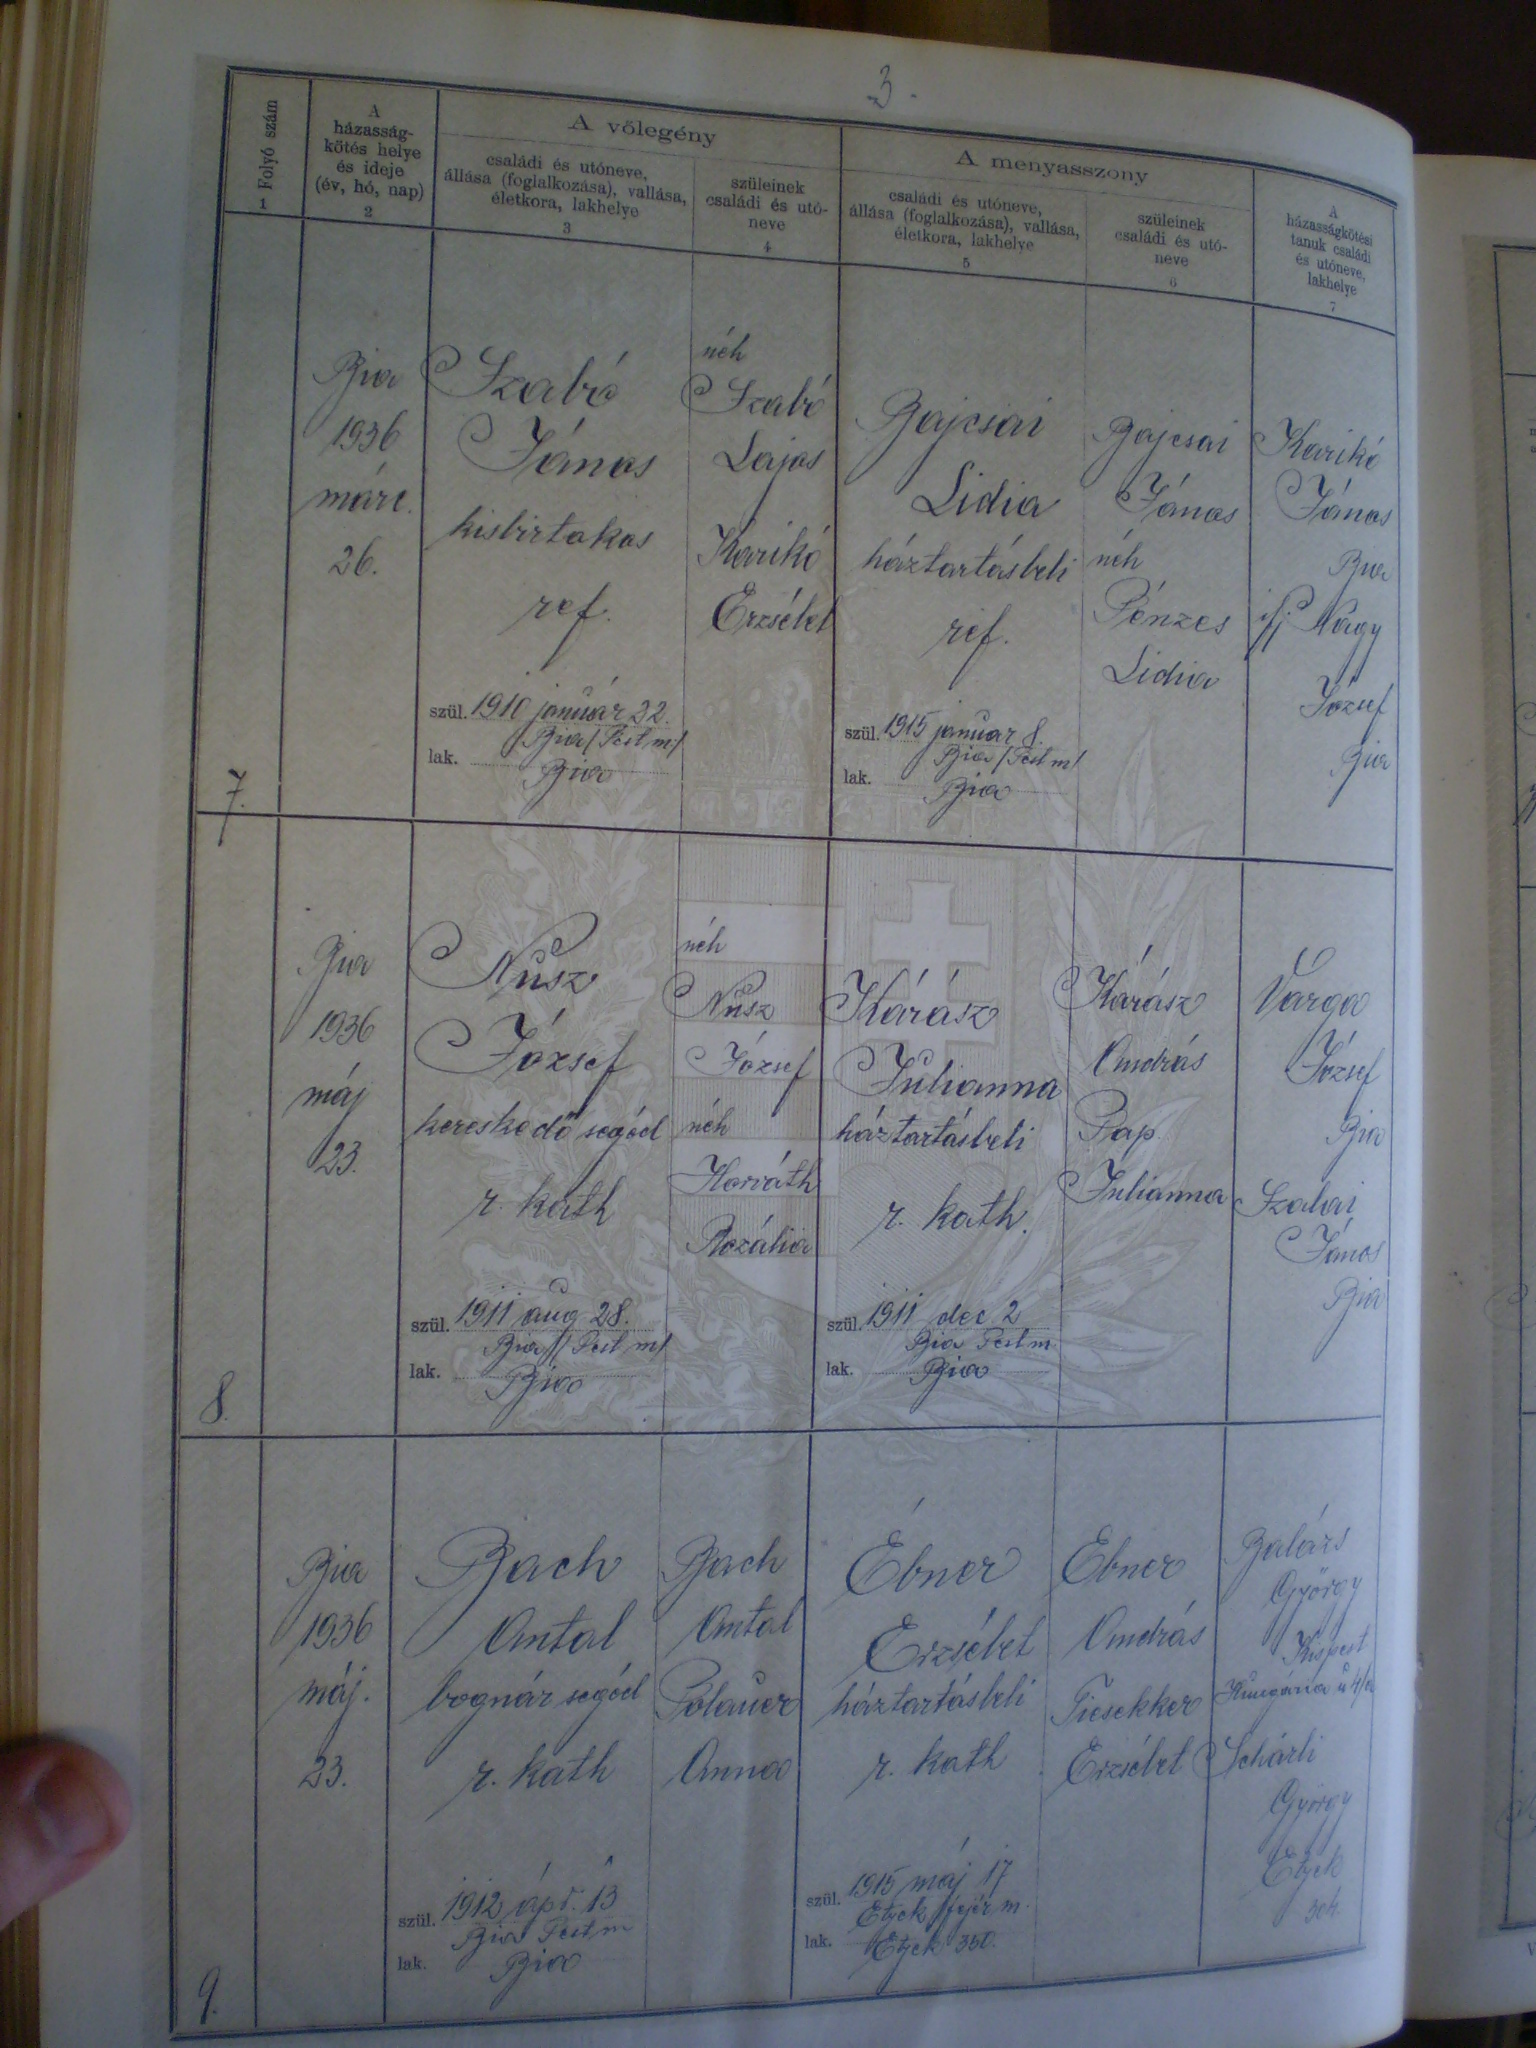 3.
Folyó szám
1
A
házasság-
kötés helye
és ideje
(év, hó, nap)
2
A vőlegény
családi és utóneve,
állása (foglalkozása), vallása,
életkora, lakhelye
3
szüleinek
családi és utó-
neve
4
A menyasszony
családi és utóneve,
állása (foglalkozása), vallása,
életkora, lakhelye
5
szüleinek
családi és utó-
neve
6
A
házasságkötési
tanuk családi
és utóneve,
lakhelye
7
7.
Bia
1936
márc.
26.
Szabó
János
kisbirtokos
ref.
szül. 1910 január 22.
Bia / Pest m /
lak.
Bia
néh
Szabó
Lajos
Karikó
Erzsébet
Bajcsai
Lidia
háztartásbeli
ref.
szül. 1915 január 8.
Bia / Pest m /
lak.
Bia
Bajcsai
János
néh
Pénzes
Lidia
Karikó
János
Bia
ifj Nagy
József
Bia
8.
Bia
1936
máj
23.
Nusz
József
kereskedő segéd
r. kath
szül. 1911 aug 28.
Bia / Pest m /
lak.
Bia
néh
Nusz
József
néh
Horváth
Rozália
Kárász
Julianna
háztartásbeli
r. kath.
szül. 1911 dec 2
Bia Pest m
lak.
Bia
Kárász
András
Pap
Julianna
Varga
József
Bia
Szalai
János
Bia
9.
Bia
1936
máj.
23.
Bach
Antal
bognár segéd
r. kath
szül. 1912 ápr. 13
Bia Pest m
lak.
Bia
Bach
Antal
Polauer
Anna
Ébner
Erzsébet
háztartásbeli
r. kath
szül. 1915 máj 17
Etyek / fejér m.
lak.
Etyek 350.
Ebner
András
Ficsekker
Erzsébet
Balázs
György
Kispest
Hungária u
Schárli
György
Etyek